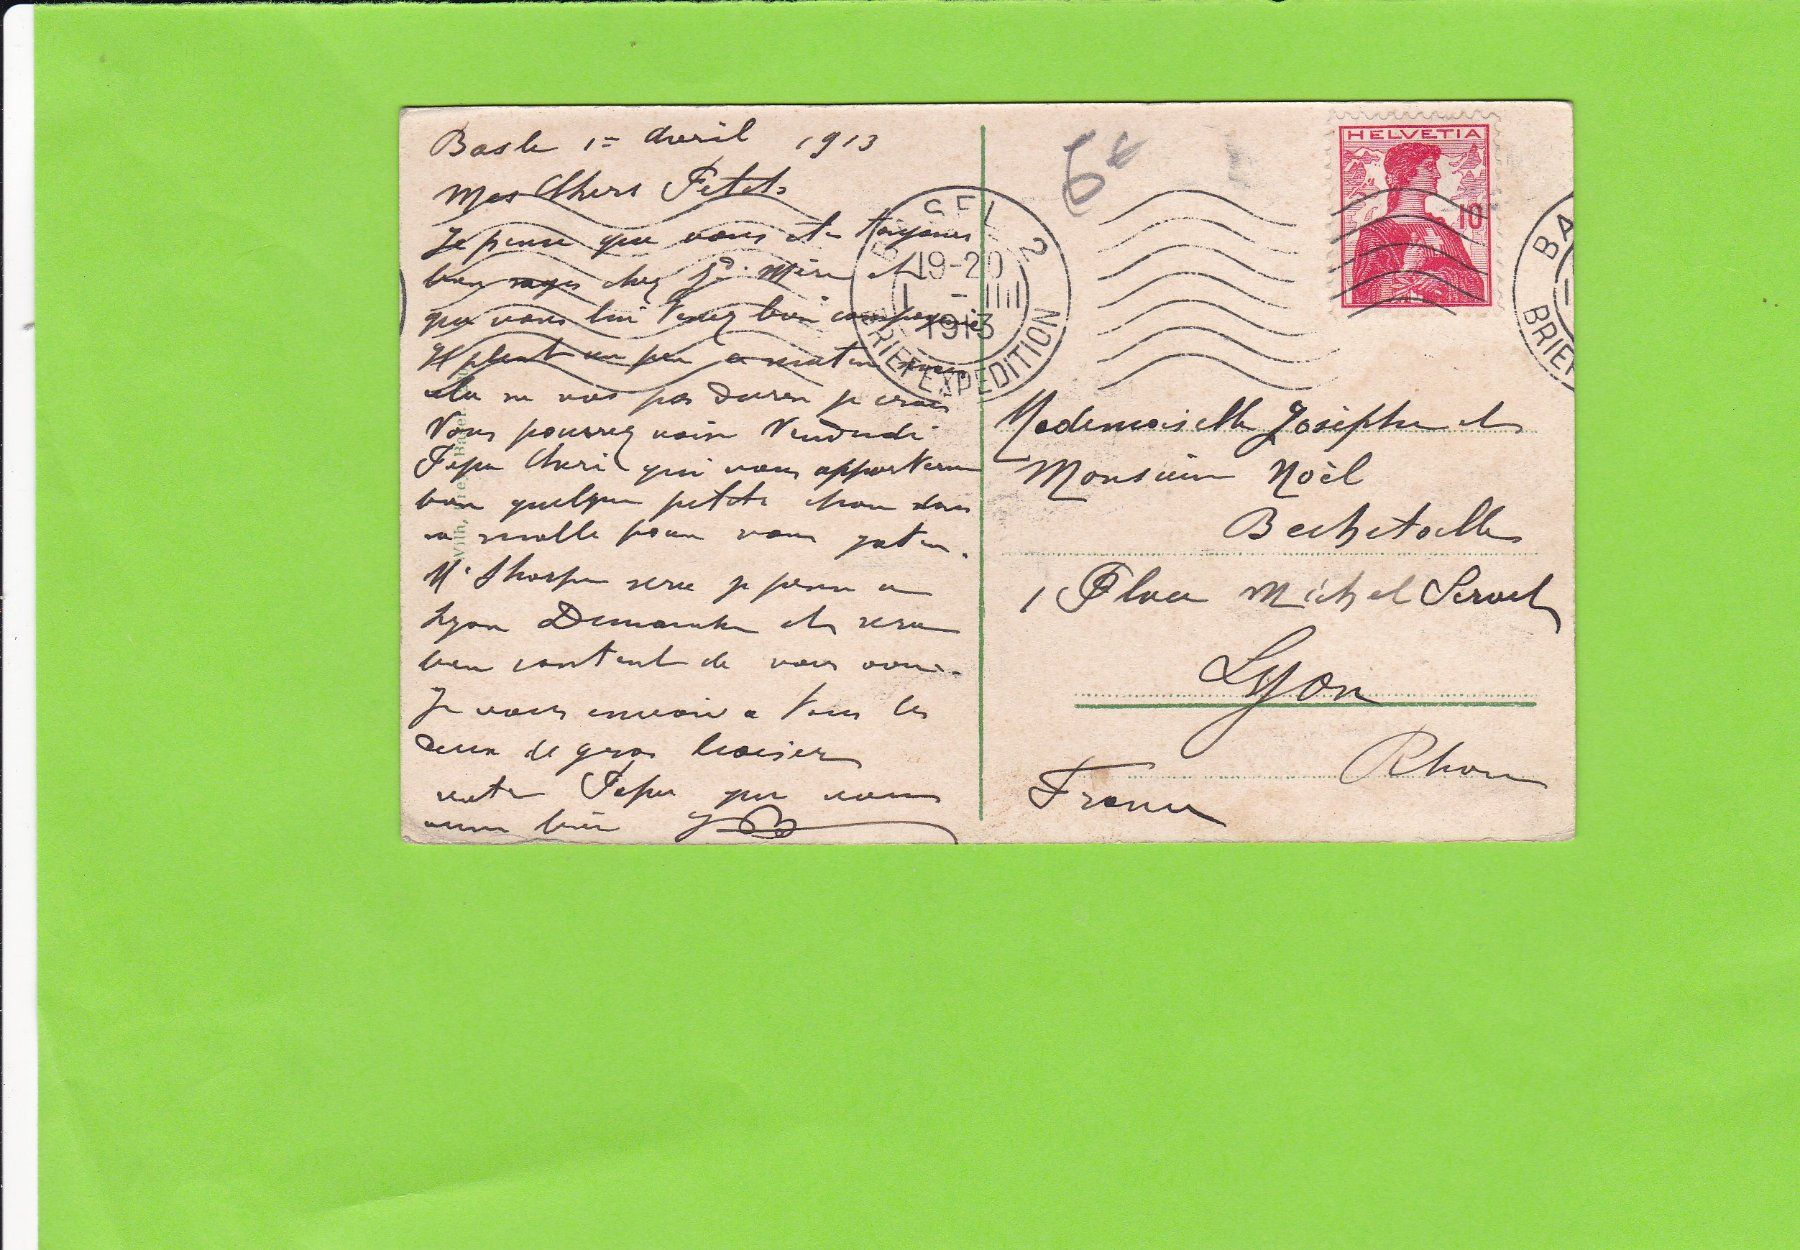 Basle 1= Avril 1913
Mes Chers Petits
Je pense que vous ête toujours
bien sages chez Gd Mère et
que vous lui tenez bien compagnie
Il pleut un peu ce matin mais
cela ne vas pas durer je crois
Vous pourrez voir Vendredi
Papa Cheri qui vous apportera
bien quelque petite chose dans
sa malle pour vous gater.
Mr Sharpe sera je pense a
Lyon Dimanche et sera
bien content de vous voir.
Je vous envoie a tous les
deux de gros baisers
votre Papa qui vous
aime bien JB
Wilh. Frey, Basel
BASEL 2
19-20
1 - IIII
1913
BRIEFEXPEDITION
6€
HELVETIA
10
BA
BRIEF
Mademoiselle Josephe et
Monsieur Noèl
Bechetoille
1 Place Michel Servet
Lyon
Rhone
France